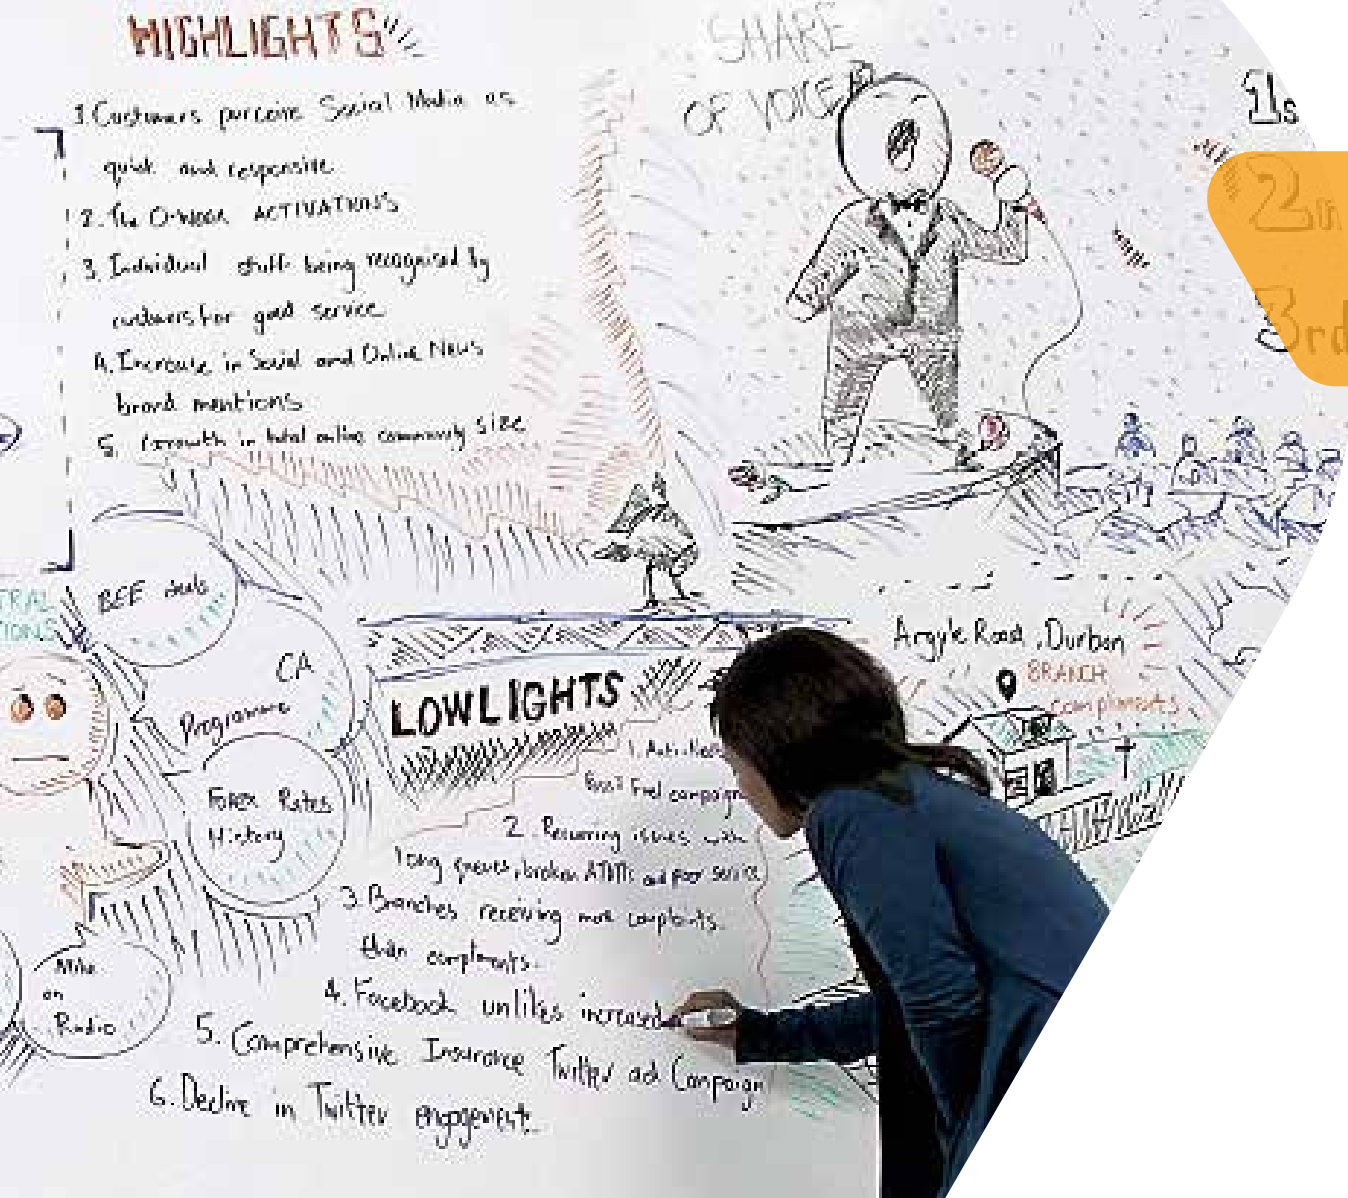 HIGHLIGHTS
1. Customers perceive Social Media as
quick and responsive
2. The O-Week ACTIVATIONS
3. Individual staff being recognised by
customers for good service
4. Increase in Social and Online News
brand mentions
5. Growth in total online community size
SHARE
OF VOICE
1s
2n
3rd
TRAL
TIONS
BEE deals
CA
Programme
Forex Rates
History
Mike
on
Radio
LOWLIGHTS
1.
Fossil Fuel campaign
2. Recurring issues with
long queues, broken ATMs and poor service
3. Branches receiving more complaints
than compliments.
4. Facebook unlikes increased
5. Comprehensive Insurance Twitter ad Campaign
6. Decline in Twitter engagement.
Argyle Road, Durban
BRANCH
compliments